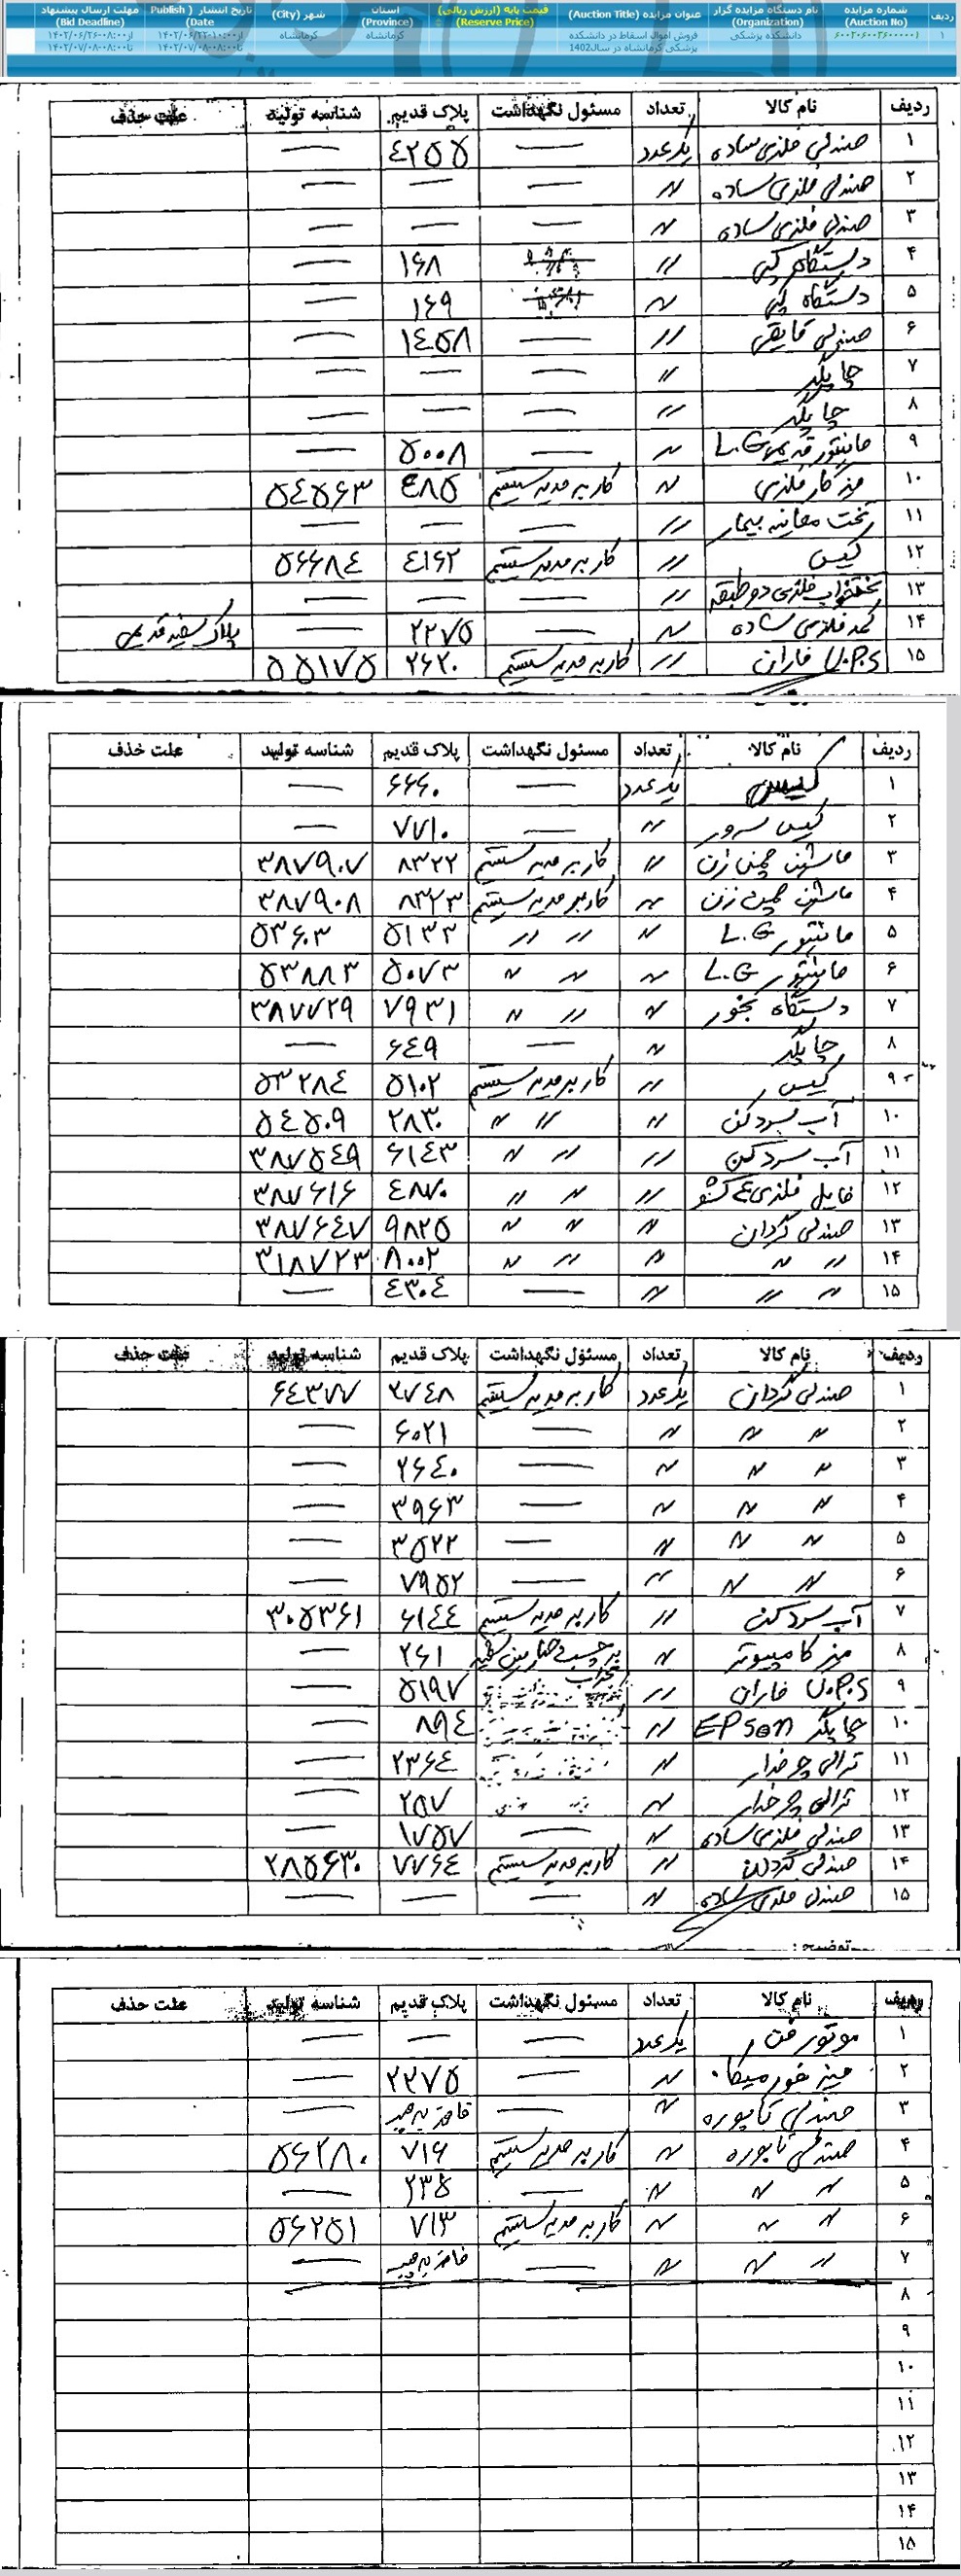 ردیف	شماره مزایده (Auction No)	نام دستگاه مزایده گزار (Organization)	عنوان مزایده (Auction Title)	قیمت پایه (ارزش ریالی) (Reserve Price)	استان (Province)	شهر (City)	تاریخ انتشار (Publish Date)	مهلت ارسال پیشنهاد (Bid Deadline)
۱	دانشکده پزشکی	فروش اموال اسقاط در دانشکده پزشکی کرمانشاه در سال1402	کرمانشاه	کرمانشاه
ردیف	نام کالا	تعداد	مسئول نگهداشت	پلاک قدیم	شناسه تولید	علت حذف
۱	صندلی فلزی ساده	یک عدد	—	٤۲۵۵	—
۲	صندلی فلزی ساده	〃	—	—	—
۳	صندلی فلزی ساده	〃	—	—	—
۴	دستگاه کپی	〃	۱۶۸	—
۵	دستگاه کپی	〃	۱۶۹	—
۶	صندلی قایقی	〃	—	۱٤۵۸	—
۷	چاپگر	〃	—	—	—
۸	چاپگر	〃	—	—	—
۹	مانیتور قدیمی L.G	〃	—	۵۰۰۸	—
۱۰	میز کار فلزی	〃	کاربر مدیر سیستم	٤۸۵	۵٤۵۶۳
۱۱	تخت معاینه بیمار	〃	—	—	—
۱۲	کیس	〃	کاربر مدیر سیستم	٤۱۶۲	۵۶۶۸٤
۱۳	تختخواب فلزی دو طبقه	〃	—	—	—
۱۴	کمد فلزی ساده	〃	—	۲۲۷۵	—	پلاک سفید قدیمی
۱۵	U.P.S فاران	〃	کاربر مدیر سیستم	۲۶۲۰	۵۵۱۷۵
ردیف	نام کالا	تعداد	مسئول نگهداشت	پلاک قدیم	شناسه تولید	علت حذف
۱	کیس	یک عدد	—	۶۶۶۰	—
۲	کیس سرور	〃	—	۷۷۱۰	—
۳	ماشین چمن زن	〃	کاربر مدیر سیستم	۸۳۲۲	۳۸۷۹۰۷
۴	ماشین چمن زن	〃	کاربر مدیر سیستم	۸۳۲۳	۳۸۷۹۰۸
۵	مانیتور L.G	〃	〃 〃	۵۱۳۳	۵۳۶۰۳
۶	مانیتور L.G	〃	〃 〃	۵۰۷۳	۵۳۸۸۳
۷	دستگاه بخور	〃	〃 〃	۷۹۳۱	۳۸۷۷۲۹
۸	چاپگر	〃	—	۶٤۹	—
۹	کیس	〃	کاربر مدیر سیستم	۵۱۰۲	۵۳۲۸٤
۱۰	آب سردکن	〃	〃 〃	۲۸۳۰	۵٤۵۰۹
۱۱	آب سردکن	〃	〃 〃	۶۱٤۳	۳۸۷۵٤۹
۱۲	فایل فلزی ٤ کشو	〃	〃 〃	٤۸۷۰	۳۸۷۶۱۶
۱۳	صندلی گردان	〃	〃 〃	۹۸۲۵	۳۸۷۶٤۷
۱۴	〃 〃	〃	〃 〃	۸۰۰۲	۳۱۸۷۲۳
۱۵	〃 〃	〃	—	٤۳۰٤	—
ردیف	نام کالا	تعداد	مسئول نگهداشت	پلاک قدیم	شناسه تولید	علت حذف
۱	صندلی گردان	یک عدد	کاربر مدیر سیستم	۲۷٤۸	۶٤۳۷۷
۲	〃 〃	〃	—	۶۰۲۱	—
۳	〃 〃	〃	—	۲۶٤۰	—
۴	〃 〃	〃	—	۳۹۶۳	—
۵	〃 〃	〃	—	۳۵۲۲	—
۶	〃 〃	〃	—	۷۹۵۲	—
۷	آب سردکن	〃	کاربر مدیر سیستم	۶۱٤٤	۳۰۵۳۶۱
۸	میز کامپیوتر	〃	۲۶۱	—
۹	U.P.S فاران	〃	۵۱۹۷	—
۱۰	چاپگر EPSon	〃	۸۹٤	—
۱۱	ترالی چرخدار	〃	۲۳۶٤	—
۱۲	ترالی چرخدار	〃	۲۵۷	—
۱۳	صندلی فلزی ساده	〃	—	۱۷۵۷	—
۱۴	صندلی گردان	〃	کاربر مدیر سیستم	۷۷۶٤	۲۸۵۶۳۰
۱۵	صندلی فلزی ساده	〃	—	—	—
توضیح :
ردیف	نام کالا	تعداد	مسئول نگهداشت	پلاک قدیم	شناسه تولید	علت حذف
۱	موتور فن	یک عدد	—	—	—
۲	میز فورمیکا	〃	—	۲۲۷۵	—
۳	صندلی تابوره	〃	—	فاقد برچسب	—
۴	صندلی تابوره	〃	کاربر مدیر سیستم	۷۱۶	۵۶۲۸۰
۵	〃 〃	〃	—	۲۳۵	—
۶	〃 〃	〃	کاربر مدیر سیستم	۷۱۳	۵۶۲۵۱
۷	〃 〃	〃	—	فاقد برچسب	—
۸
۹
۱۰
۱۱
۱۲
۱۳
۱۴
۱۵